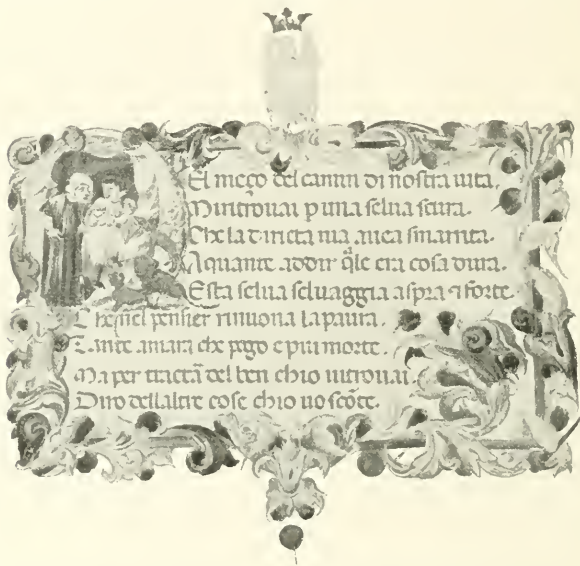 El meço del camin di nostra uita.
Mi ritrouai p una selua scura.
Che la diricta uia auea smarrita.
A quante addir q̃le era cosa dura.
Esta selua seluaggia aspra ⁊ forte.
Che nel pensier rinuoua la paura.
Tante amara che pogo e piu morte.
Ma per tractar̃ del ben chio ui trouai
Diro dellaltre cose chio uo scõte.